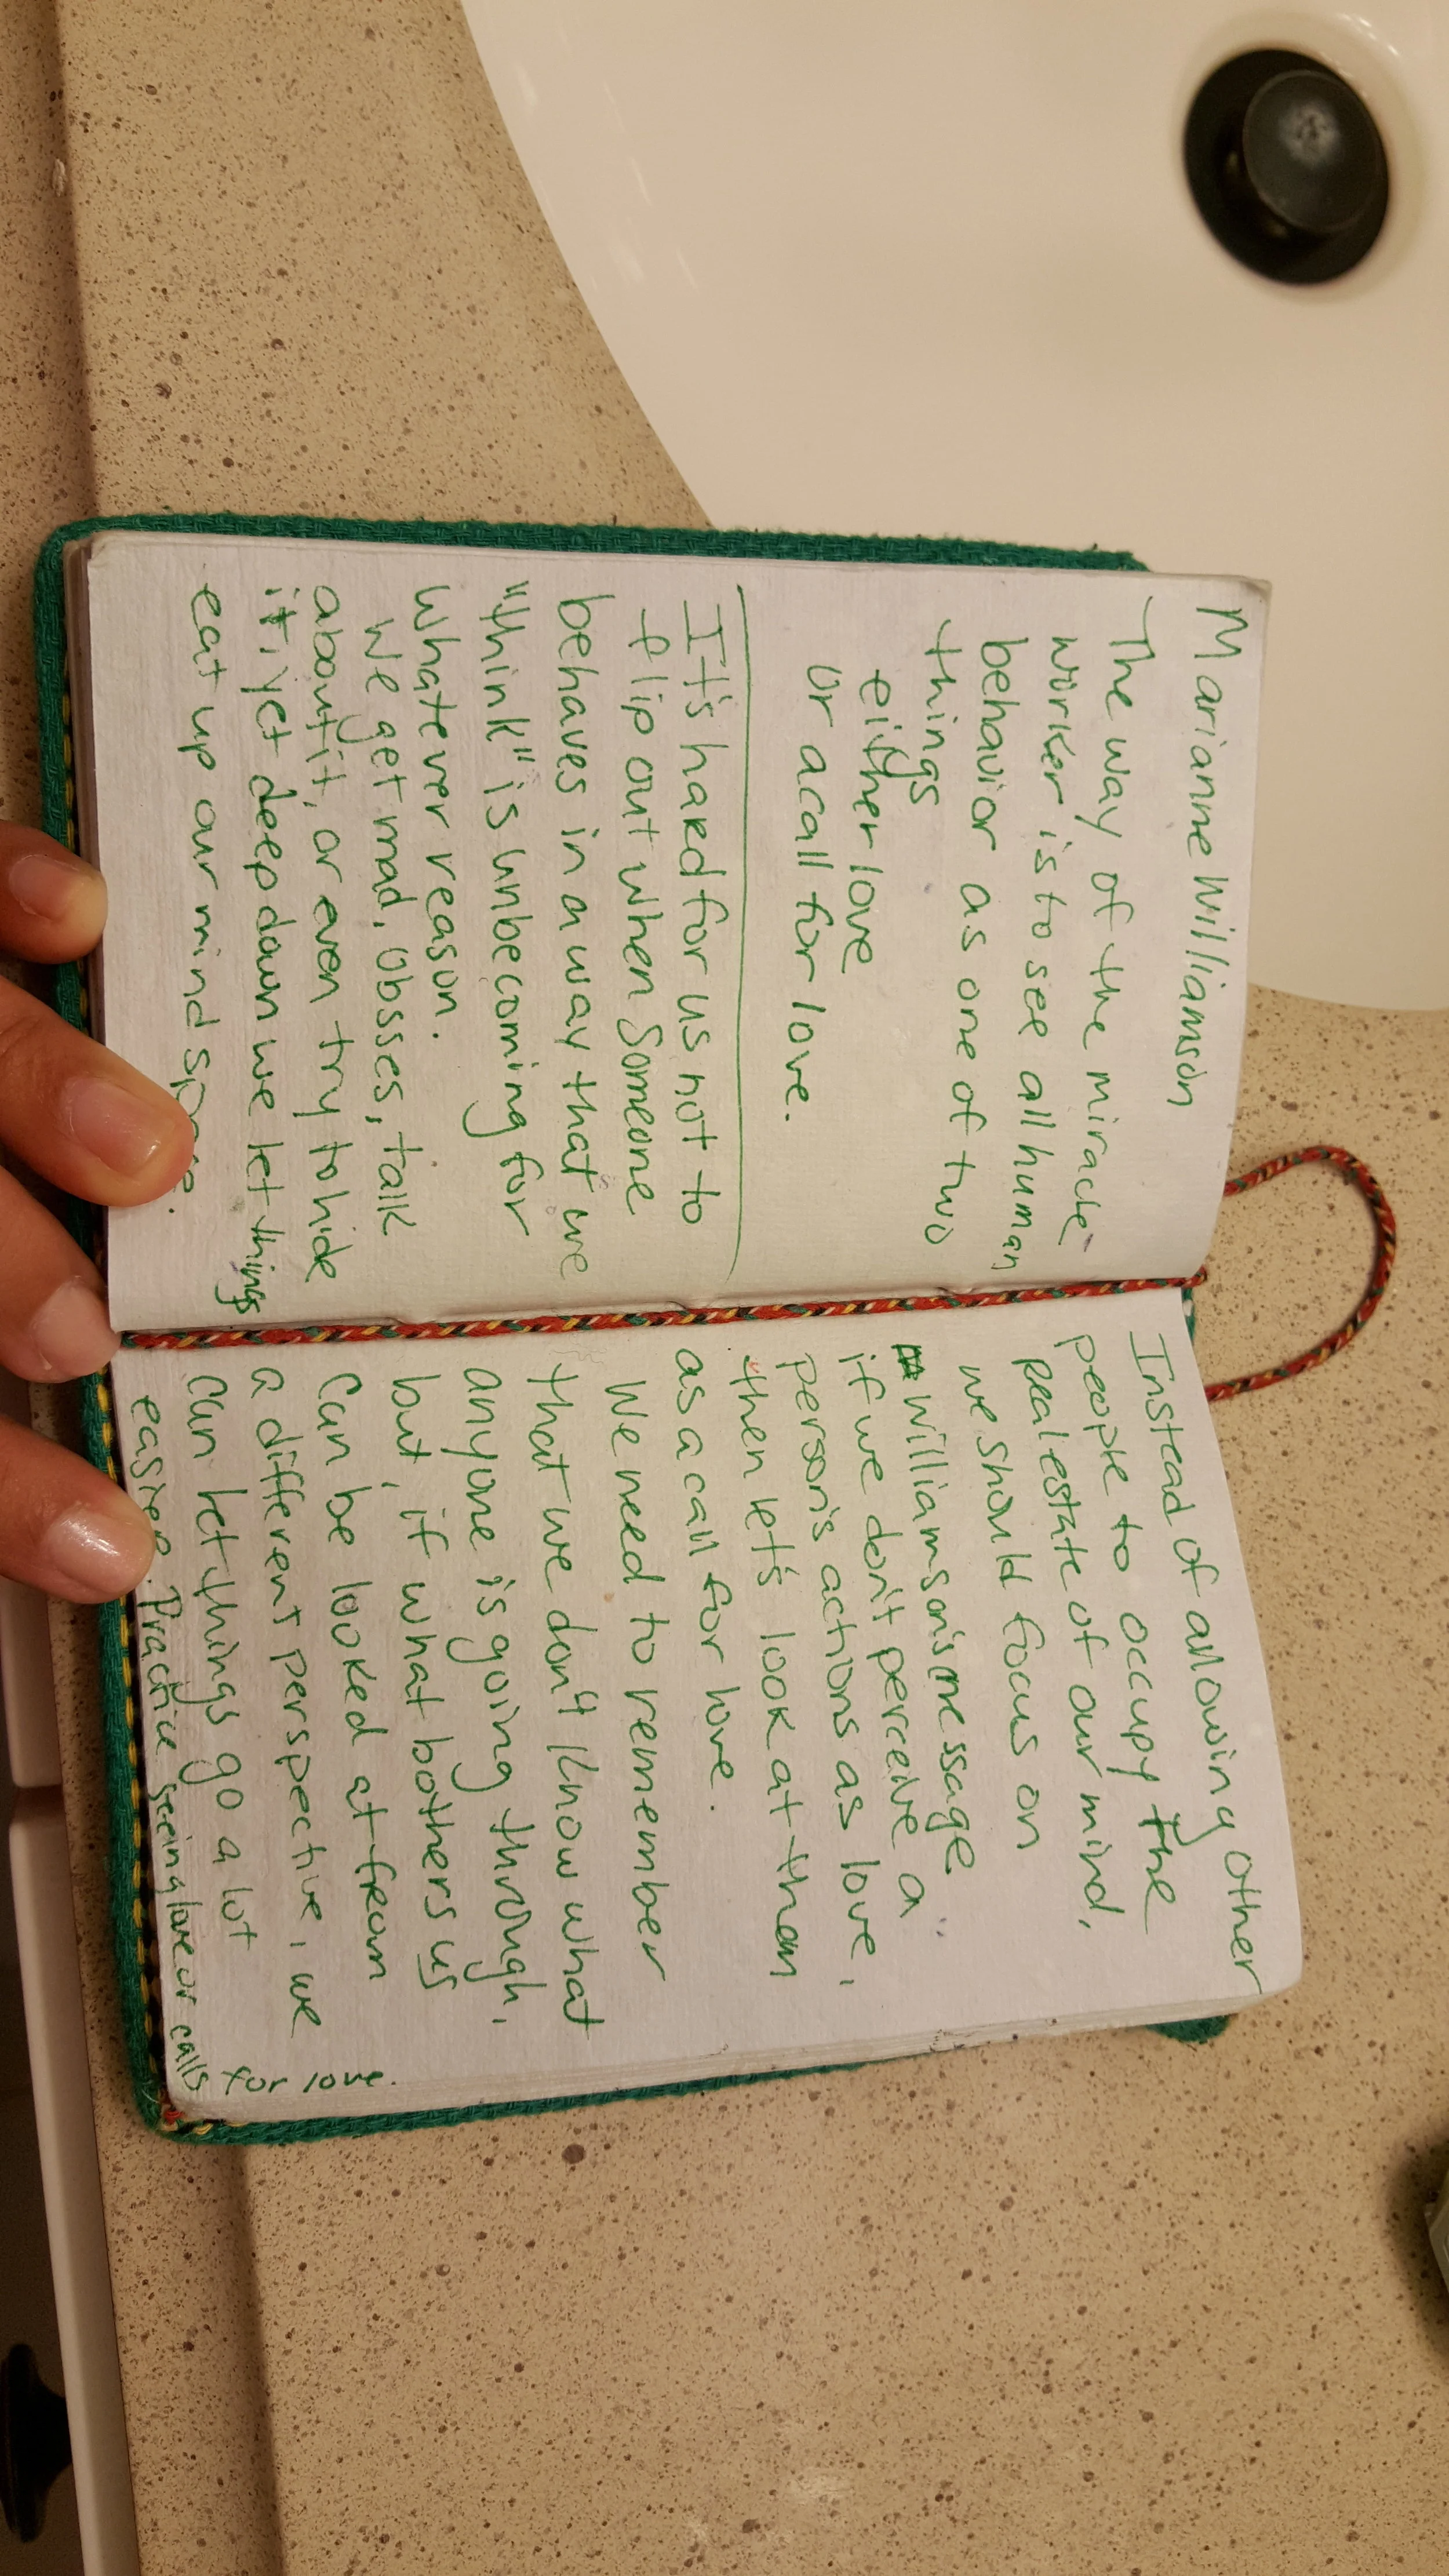 Marianne Williamson
The way of the miracle-
worker is to see all human
behavior as one of two
things
either love
or a call for love.
It's hard for us not to
flip out when someone
behaves in a way that we
"think" is unbecoming for
whatever reason.
We get mad, obsses, talk
about it, or even try to hide
it, yet deep down we let things
eat up our mind space.
Instead of allowing other
people to occupy the
real estate of our mind,
we should focus on
Williamson's message
if we don't perceive a
person's actions as love,
then let's look at them
as a call for love.
We need to remember
that we don't know what
anyone is going through,
but, if what bothers us
can be looked at from
a different perspective, we
can let things go a lot
easier. Practice seeing love or calls
for love.